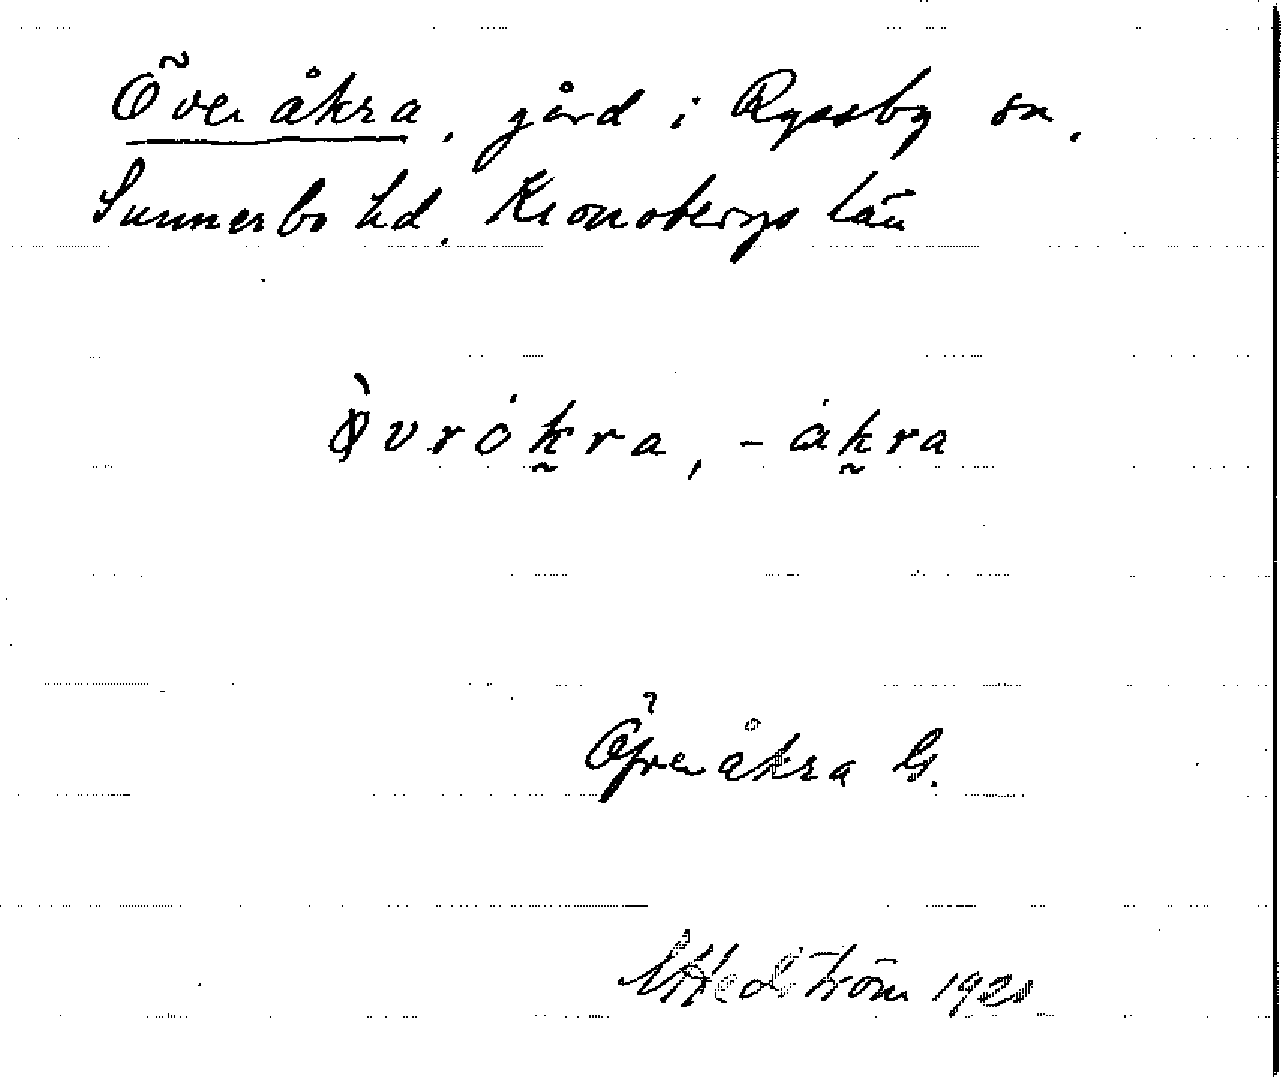 Överåkra, gård i Ryssby sn,
Sunnerbo hd, Kronobergs län
Öfveråkra G.
Hedström 1921